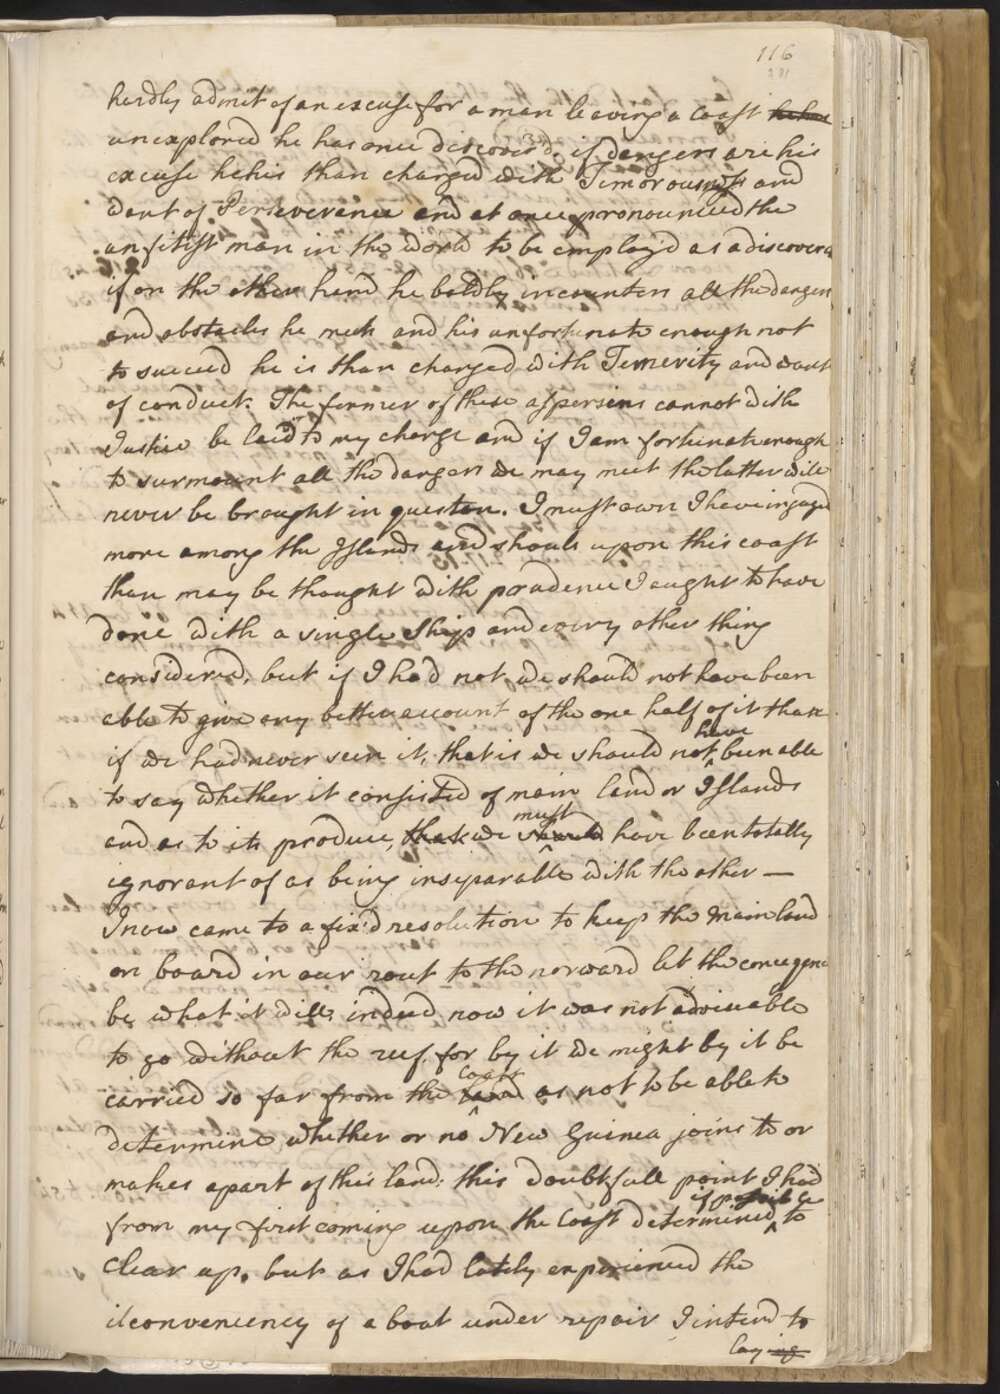 116
281
hardly admit of an excuse for a man leaving a Coast he has
unexplored he has once discover'd, if dangers are his
excuse he his than charged with Timorousness and
want of Perseverance and at once pronounced the
unfitest man in the world to be employ'd as a discoverer
if on the other hand he boldly incounters all the dangers
and obstacles he meets and his unfortunate enough not
to succeed he is than charged with Temerity and want
of conduct. The former of these aspersins cannot with
Justice be laid to my charge and if I am fortunate enough
to surmount all the dangers we may meet the latter will
never be brought in question. I must own I have ingaged
more among the Islands and shoals upon this coast
than may be thought with prudence I ought to have
done with a single Ship and every other thing
considered, but if I had not we should not have been
able to give any better account of the one half of it than
if we had never seen it, that is we should not have been able
to say whether it consisted of main land or Islands
and as to its produce, that we should must have been totally
ignorant of as being inseparable with the other —
I now came to a fix'd resolution to keep the Main land
on board in our rout to the norward let the conseqence
be what it will, indeed now it was not adviseable
to go without the reef, for by it we might by it be
carried so far from the land Coast as not to be able to
determine whether or no New Guinea joins to or
makes a part of this land. this doubtfull point I had
from my first coming upon the Coast determined if possible to
clear up. but as I had lately experienced the
ilconveniency of a boat under repair I intend to
laying